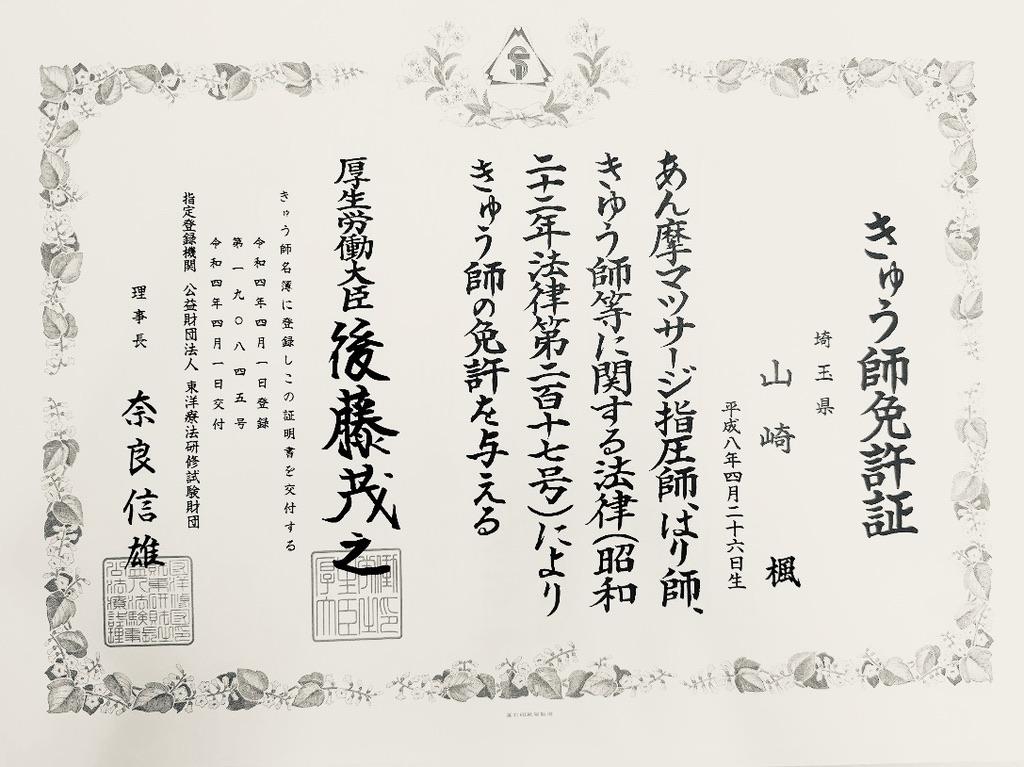 きゅう師免許証
埼玉県
山崎 楓
平成八年四月二十六日生
あん摩マツサージ指圧師、はり師、
きゆう師等に関する法律(昭和
二十二年法律第二百十七号)により
きゅう師の免許を与える
厚生労働大臣 後藤茂之
きゅう師名簿に登録しこの証明書を交付する
令和四年四月一日登録
第一九〇八四五号
令和四年四月一日交付
指定登録機関 公益財団法人 東洋療法研修試験財団
理事長 奈良信雄